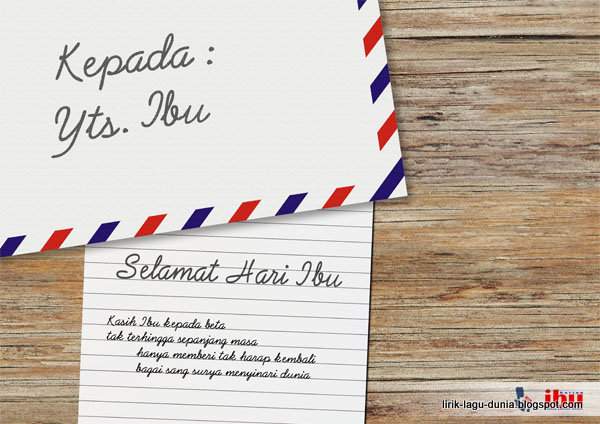 Kepada :
Yts. Ibu
Selamat Hari Ibu
Kasih Ibu kepada beta
tak terhingga sepanjang masa
hanya memberi tak harap kembali
bagai sang surya menyinari dunia
ibu
lirik-lagu-dunia.blogspot.com